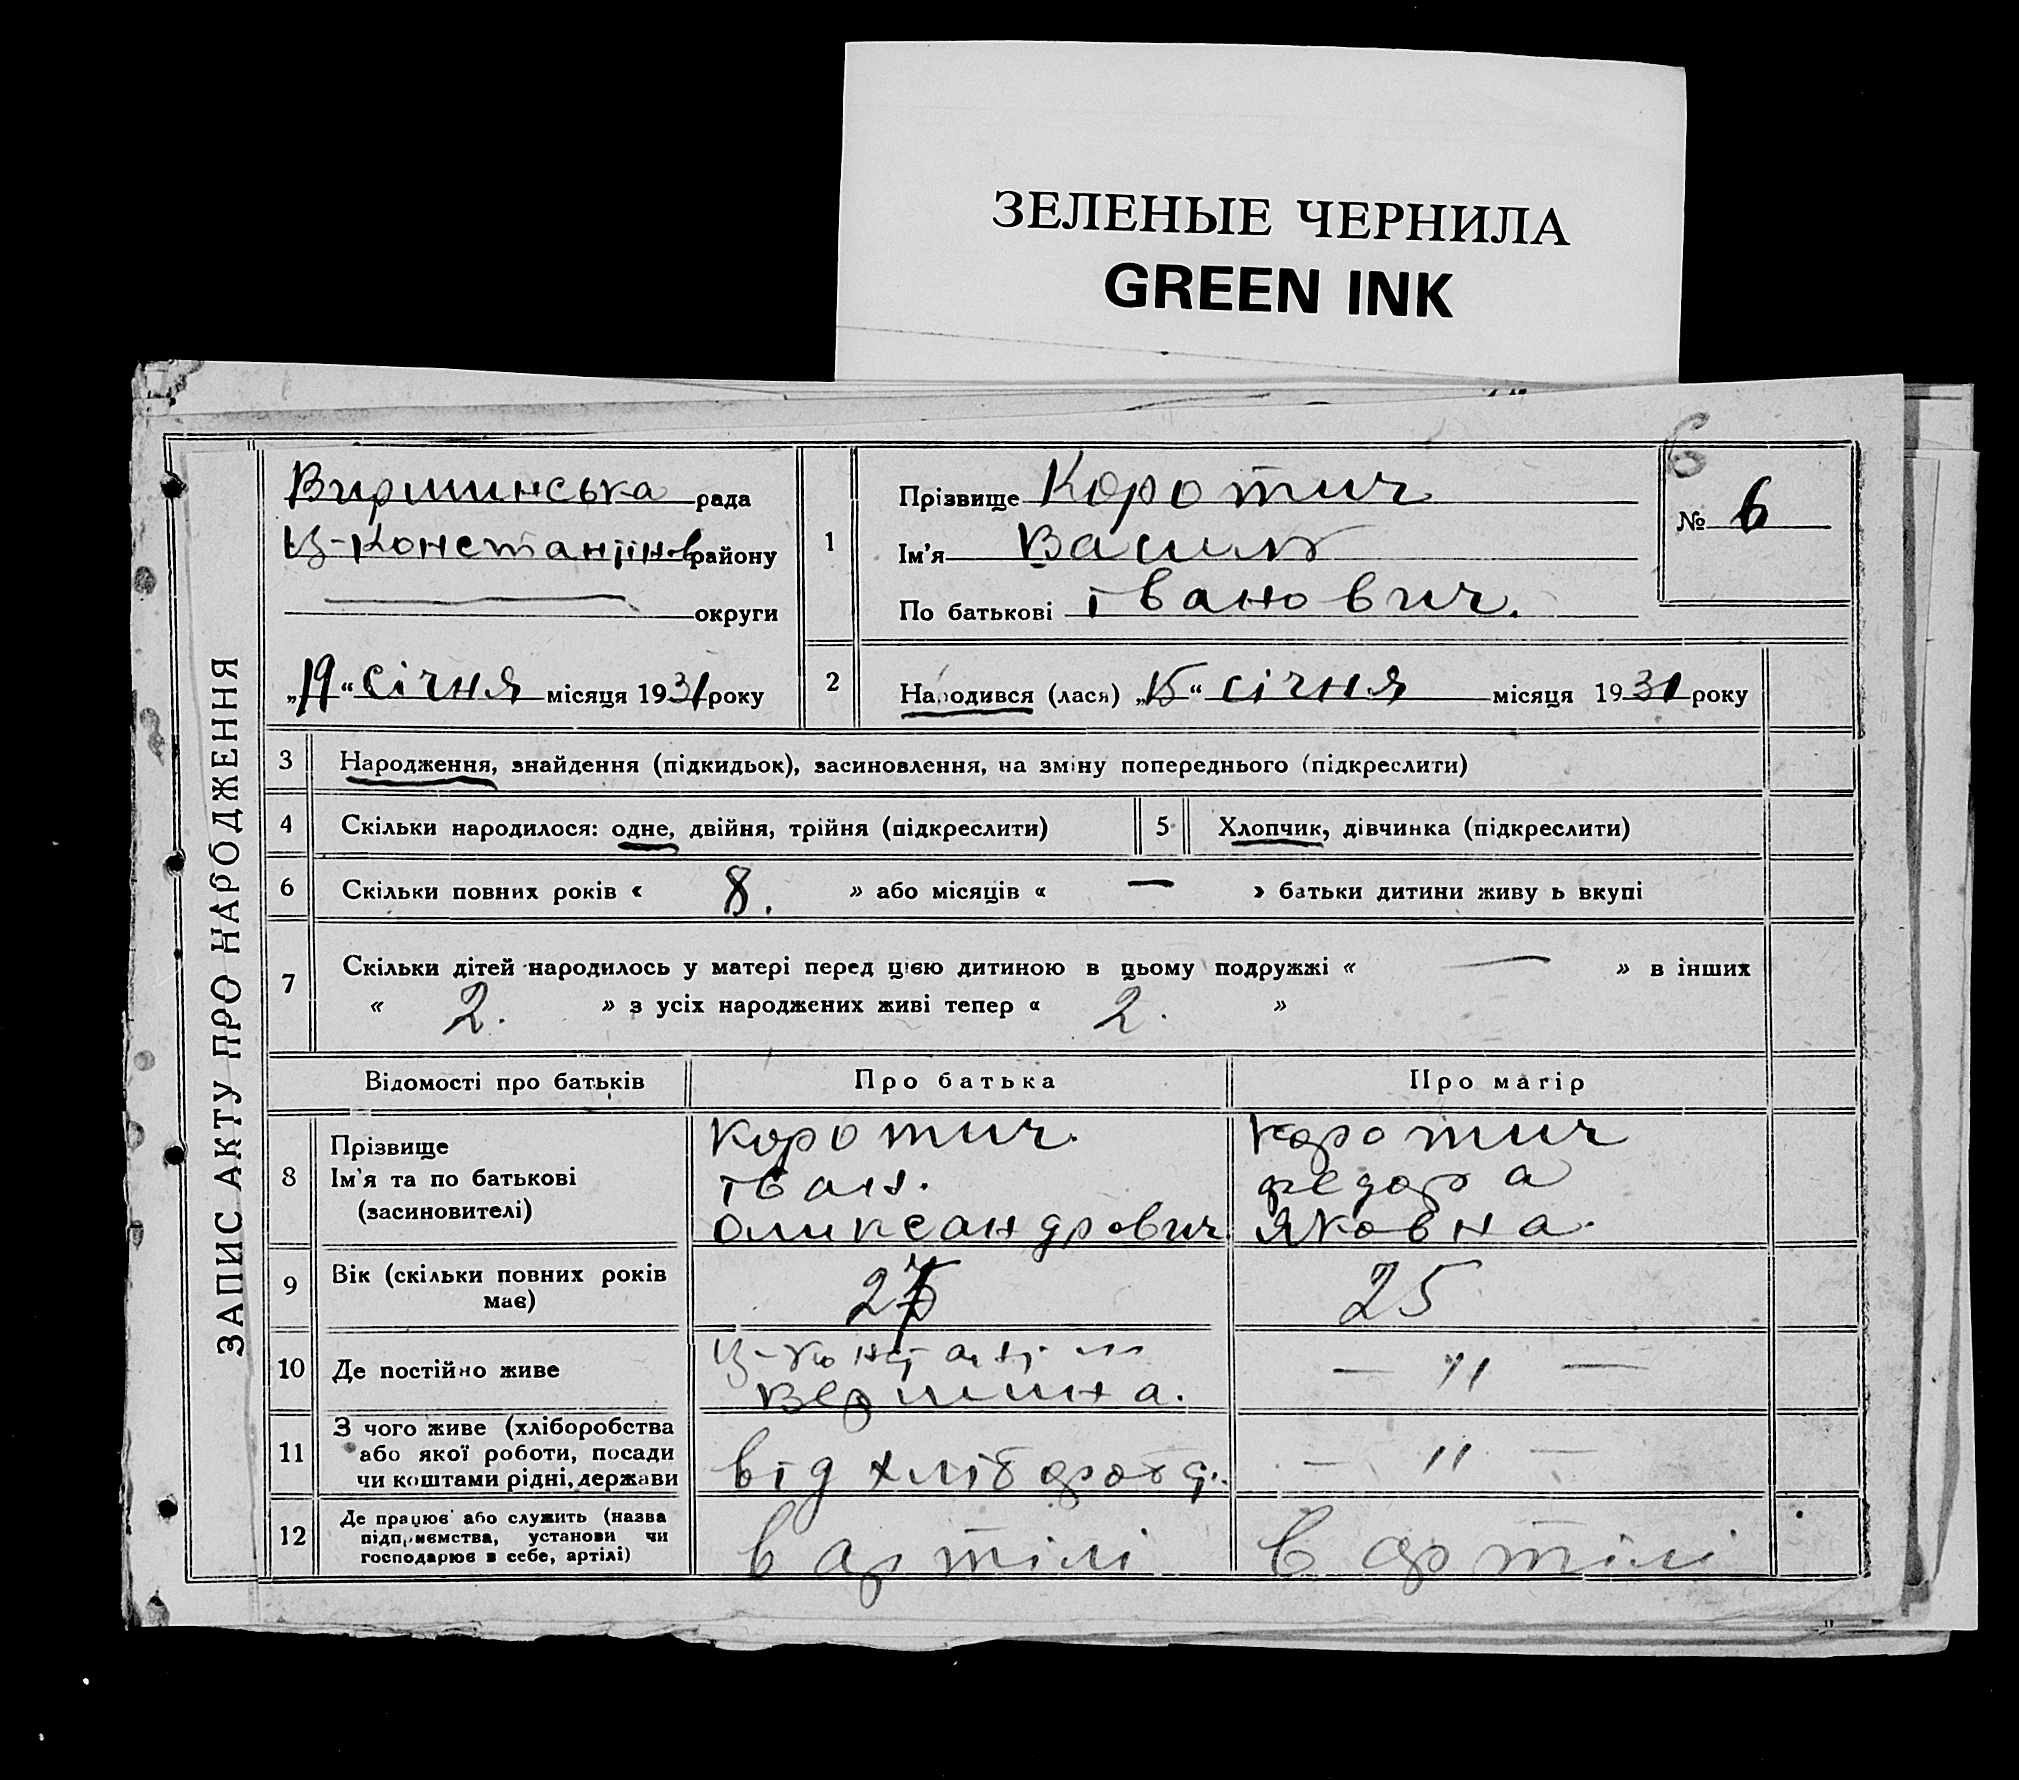 ЗЕЛЕНЫЕ ЧЕРНИЛА
GREEN INK
6
ЗАПИС АКТУ ПРО НАРОДЖЕННЯ
Вирминська рада
Ц-Константінов району
округи
„19“ січня місяця 1931 року
1
Прізвище Коротич
Ім'я Василь
По батькові Іванович.
№ 6
2
Народився (лася) „15“ січня місяця 1931 року
3 Народження, знайдення (підкидьок), засиновлення, на зміну попереднього (підкреслити)
4 Скільки народилося: одне, двійня, трійня (підкреслити)
5 Хлопчик, дівчинка (підкреслити)
6 Скільки повних років « 8. » або місяців « — » батьки дитини живу ь вкупі
7 Скільки дітей народилось у матері перед цією дитиною в цьому подружжі « — » в інших
« 2. » з усіх народжених живі тепер « 2. »
Відомості про батьків Про батька Про матір
8 Прізвище
Ім'я та по батькові
(засиновителі)
Коротич.
Іван.
Олександрович
Коротич
Федора
Яковна.
9 Вік (скільки повних років
має)
25
10 Де постійно живе
Вермина.
— " —
11 З чого живе (хліборобства
або якої роботи, посади
чи коштами рідні, держави
від хліборобц.
— " —
12 Де працює або служить (назва
підприємства, установи чи
господарює в себе, артілі)
в артілі
в артілі